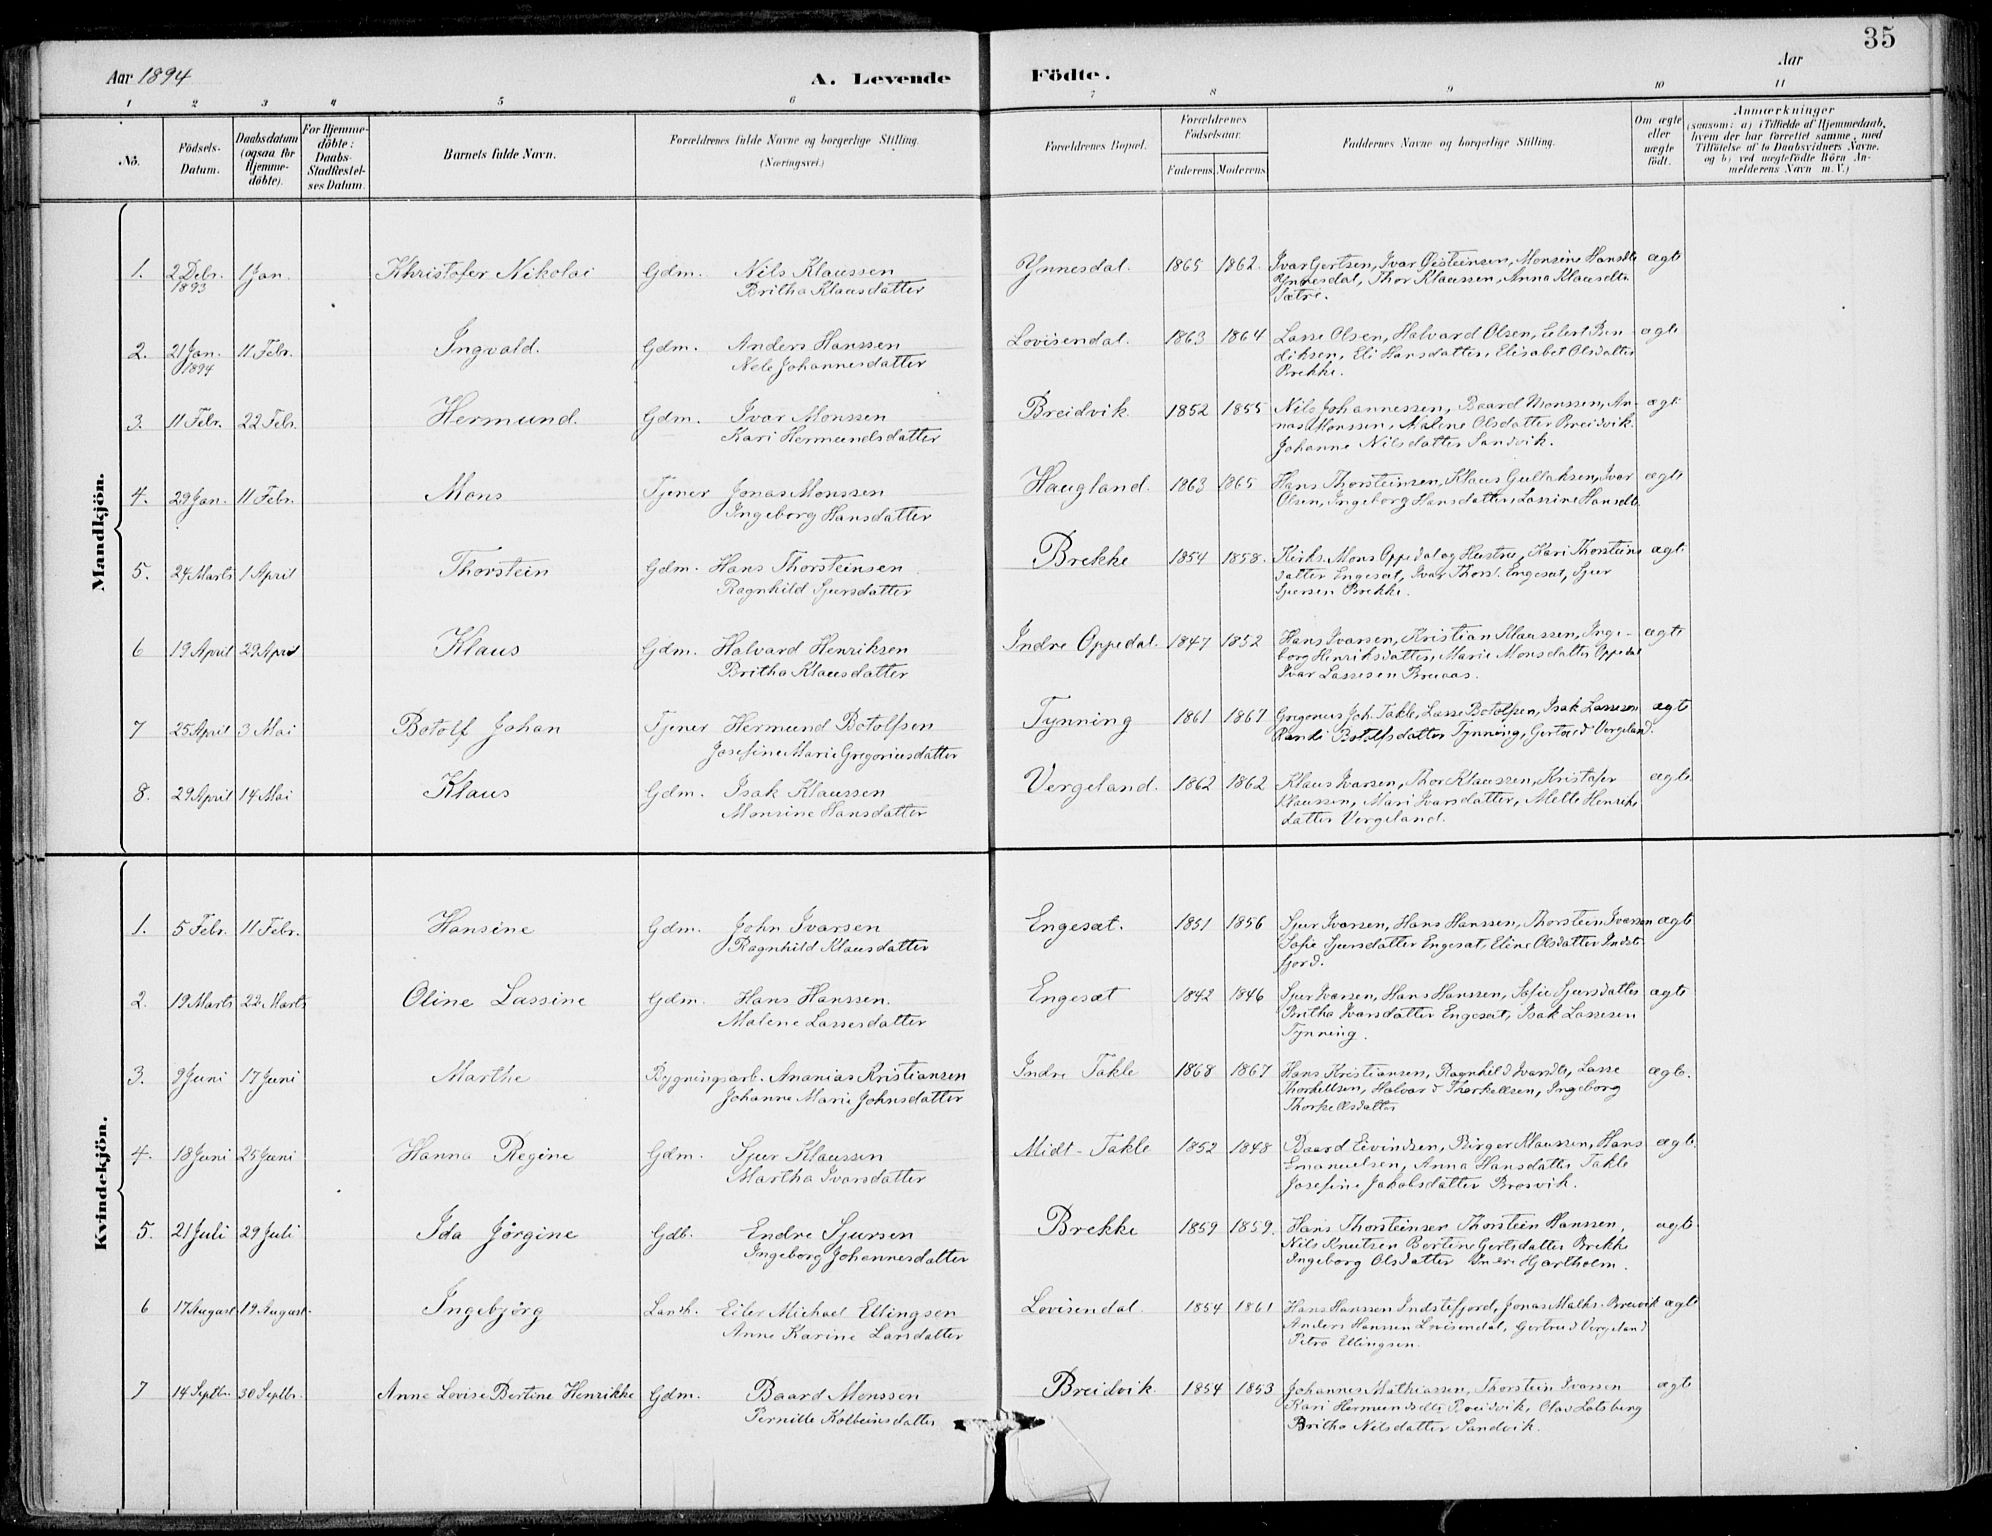 35
Aar 1894
A. Levende
Födte.
Aar
1 2 3 4 5 6 7 8 9 10 11
No.
Födsels-Datum.
Daabsdatum (ogsaa for Hjemmedöbte).
For Hjemmedöbte: Daabs-Stadfæstelses Datum.
Barnets fulde Navn.
Forældrenes fulde Navne og borgerlige Stilling. (Næringsvei.)
Forældrenes Bopæl.
Forældrenes Födselsaar.
Faderens. Moderens.
Faddernes Navne og borgerlige Stilling.
Om ægte eller uægte födt.
Anmærkninger
(saasom: a) i Tilfælde af Hjemmedaab, hvem der har forrettet samme, med Tilföielse af to Daabsvidners Navne, og b) ved uægtefödte Börn Anmelderens Navn m. V.)
Mandkjön.
1. 2 Debr. 1 Jan. Khristofer Nikolai Gdm. Nils Klaussen Ynnesdal. 1865 1862. Ivar Gertsen, Ivar Øisteinsen, Monsine Hansdtr ægte
1893 Britha Klausdatter Ynnesdal, Thor Klaussen, Anna Klausdtr.
Sætre.
2. 21 Jan. 11 Febr. Ingvald. Gdm. Anders Hanssen Lovisendal. 1863 1864 Lasse Olsen, Halvard Olsen, Eilert Ben- ægte
1894 Nele Johannesdatter diksen, Eli Hansdatter, Elisabet Olsdatter
Brekke.
3. 11 Febr. 22 Febr. Hermund. Gdm. Ivar Monssen Breidvik 1852 1855 Nils Johannessen, Baard Monssen, An- ægte
Kari Hermundsdatter nas Monssen, Malene Olsdatter Breidvik.
Johanne Nilsdatter Sandvik.
4. 29 Jan. 11 Febr. Mons Tjener Jonas Monssen Haugland. 1863 1865 Hans Thorsteinsen, Klaus Gullaksen, Ivar ægte
Ingeborg Hansdatter Olsen, Ingeborg Hansdatter, Lassine Hansdtr.
5. 24 Marts 1 April Thorstein Gdm. Hans Thorsteinsen Brekke 1854 1858. Kirks. Mons Oppedal og Hustru, Kari Thorsteins ægte
Ragnhild Sjursdatter datter Engesæt, Ivar Thorst. Engesæt, Sjur
Sjursen Brekke.
6 19 April 29 April Klaus Gdm. Halvard Henriksen Indre Oppedal. 1847 1852 Hans Ivarsen, Kristian Klaussen, Inge- ægte
Britha Klausdatter borg Henriksdatter, Marie Monsdatter Oppedal
Ivar Lassesen Bruaas.
7 25 April 3 Mai Botolf Johan Tjener Hermund Botolfsen Tynning 1861 1867 Gregorius Joh. Takle, Lasse Botolfsen, Isak Lassesen ægte
Josefine Marie Gregoriusdatter Randi Botolfsdatter Tynning, Gertrud Vergeland.
8. 29 April 14 Mai Klaus Gdm. Isak Klaussen Vergeland. 1862 1862 Klaus Ivarsen, Thor Klaussen, Kristofer ægte
Monsine Hansdatter Klaussen, Mari Ivarsdatter, Mette Henriks
datter Vergeland.
Kvindekjön.
1. 5 Febr. 11 Febr. Hansine Gdm. John Ivarsen Engesæt. 1851 1856 Sjur Ivarsen, Hans Hanssen, Thorstein Ivarsen ægte
Ragnhild Klausdatter Sofie Sjursdatter Engesæt, Eline Olsdatter Indste-
fjord.
2. 19 Marts 22 Marts Oline Lassine Gdm. Hans Hanssen. Engesæt 1842 1846 Sjur Ivarsen, Hans Hanssen, Sofie Sjursdatter ægte
Malene Lassesdatter Britha Ivarsdatter Engesæt, Isak Lassesen
Tynning.
3. 9 Juni 17 Juni Marthe Bygningsarb. Ananias Kristiansen Indre Takle 1868 1867 Hans Kristiansen, Ragnhild Ivarsdtr, Lasse ægte.
Johanne Marie Johnsdatter Thorkellsen, Halvard Thorkellsen, Ingeborg
Thorkellsdatter
4. 18 Juni 25 Juni Hanna Regine Gdm. Sjur Klaussen Midt-Takle 1852 1848 Baard Eivindsen, Birger Klaussen, Hans ægte.
Martha Ivarsdatter Emanuelsen, Anna Hansdatter Takle
Josefine Jakobsdatter Brosvik.
5. 21 Juli 29 Juli Ida Jørgine Gdb. Endre Sjursen Brekke 1859 1859. Hans Thorsteinsen Thorstein Hanssen, ægte
Ingeborg Johannesdatter Nils Knutsen Bertine Gertsdatter Brekke
Ingeborg Olsdatter Indre Hjartholm.
6 17 August 19 August Ingebjørg Lansh. Eiler Michael Ellingsen Lovisendal. 1854 1861 Hans Hanssen Indstefjord, Jonas Maths. Breivik ægte
Anne Karine Larsdatter Anders Hanssen Lovisendal, Gertrud Vergeland
Petra Ellingsen.
7 14 Septbr. 30 Septbr. Anne Lovise Bertine Henrikke Gdm. Baard Monssen Breidvik. 1854 1853 Johannes Mathiassen, Thorstein Ivarsen ægte
Pernille Kolbeinsdatter Kari Hermundsdtr Breidvik, Olav Lotsberg
Britha Nilsdatter Sandvik.